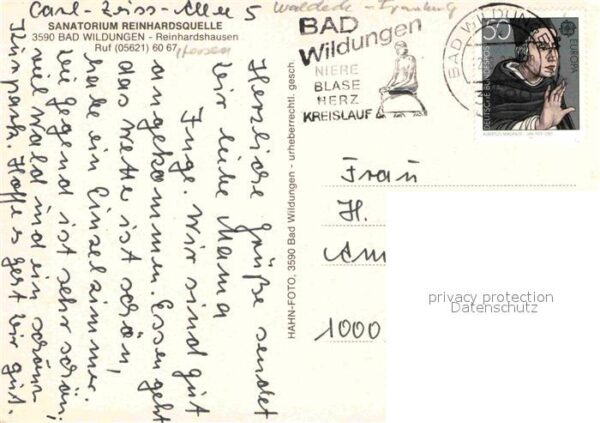 Carl-Zeiss-Allee 5
Waldeck-
SANATORIUM REINHARDSQUELLE
3590 BAD WILDUNGEN - Reinhardshausen
Ruf (05621) 60 67
Hessen
Herzliche Grüße sendet
Dir liebe Mama
Inge. Wir sind gut
angekommen. Essen geht
das Wetter ist schön,
habe ein Einzelzimmer.
Die Gegend ist sehr schön,
viel Wald und ein schöner
Kurpark. Hoffe es geht Dir gut.
HAHN-FOTO, 3590 Bad Wildungen - urheberrechtl. gesch.
BAD
Wildungen
NIERE
BLASE
HERZ
KREISLAUF
BAD WILDUN
50
EUROPA
DEUTSCHE BUNDESPOST
ALBERTUS MAGNUS
Frau
H.
Am
1000
privacy protection
Datenschutz